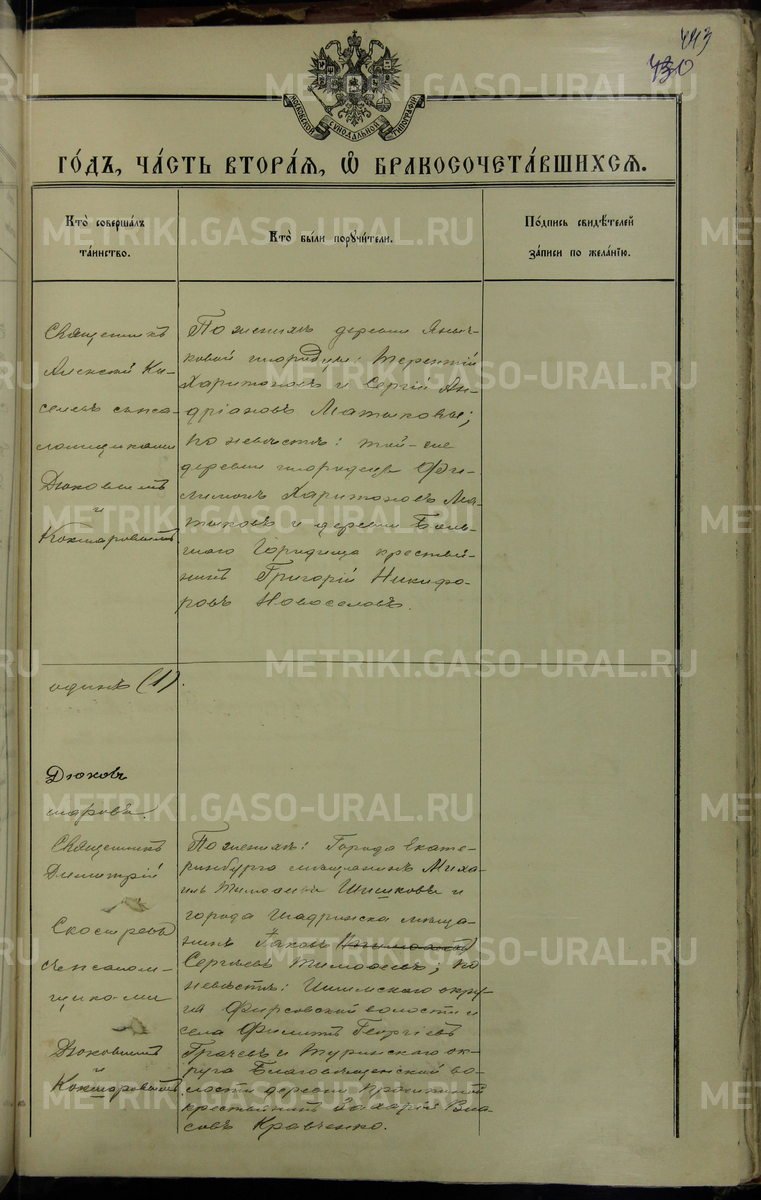 443
430
МОСКОВСКОЙ СѴНОДАЛЬНОЙ ТИПОГРАФІИ
ГО́ДЪ, ЧА́СТЬ ВТОРА́Я, Ѡ҆ БРАКОСОЧЕТА́ВШИХСЯ.
Кто̀ соверша́лъ
та́инство.
Кто̀ бы́ли поручи́тели.
По́дпись свидѣ́телей
за́писи по жела́нїю.
Священникъ
Алексѣй Ки-
селевъ съ пса-
ломщиками
Дюковымъ
и
Кокшаровымъ
По женихѣ деревни
ковой Терентій
Харитоновъ и Сергій Ан-
дріановъ Матыковы;
по невѣстѣ: той-же
деревни Фи-
лимонъ Харитоновъ Ма-
тыковъ и деревни Боль-
шого Городища крестья-
нинъ Григорій Никифо-
ровъ Новоселовъ.
одинъ (1).
Дюковъ
шаровъ.
Священникъ
Димитрій
Скостревъ
съ псалом-
щиками
Дюковымъ
и
Кокшаровымъ
По женихѣ: Города Екате-
ринбурга мѣщанинъ Миха-
илъ Тимофеевъ Шишковъ и
города Шадринска мѣща-
нинъ Іаковъ
Сергѣевъ Тимофеевъ; по
невѣстѣ: Ишимскаго окру-
га Фирсовской волости и
села Филиппъ Георгіевъ
Грачевъ и Туринскаго ок-
руга Благовѣщенской во-
лости деревни
крестьянинъ Захарій Влас-
совъ Кравченко.
METRIKI.GASO-URAL.RU